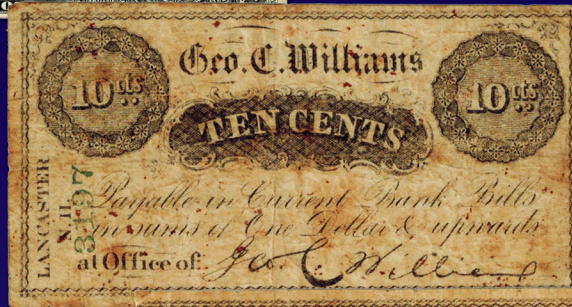 Geo. C. Williams
10 cts
10 cts
TEN CENTS
LANCASTER
N.H.
3197
Payable in Current Bank Bills
in sums of One Dollar & upwards
at Office of Geo. C. Williams